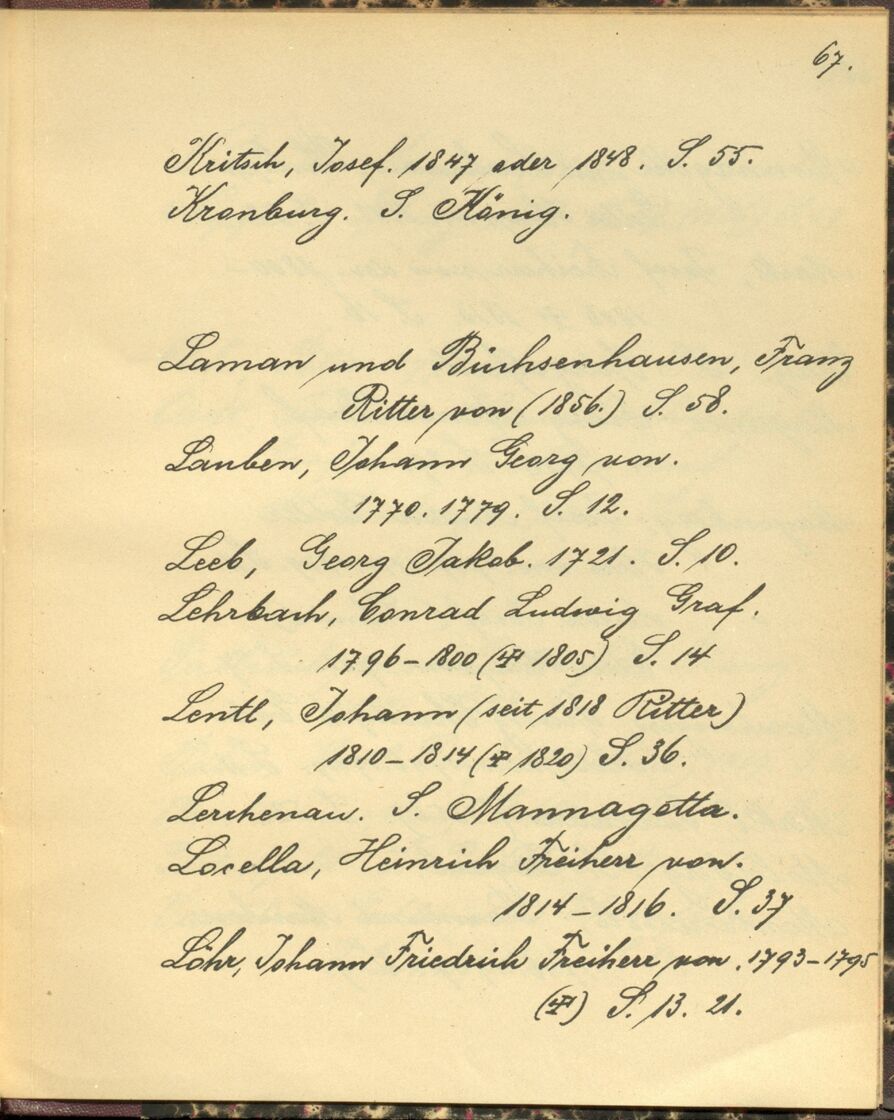 67.
Kritsch, Josef. 1847 oder 1848. S. 55.
Kronburg. S. König.
Laman und Büchsenhausen, Franz
Ritter von (1856.) S. 58.
Lauben, Johann Georg von.
1770. 1779. S. 12.
Leeb, Georg Jakob. 1721. S. 10.
Lehrbach, Conrad Ludwig Graf.
1796–1800 († 1805) S. 14
Lentl, Johann (seit 1818 Ritter)
1810–1814 († 1820) S. 36.
Lerchenau. S. Mannagetta.
Locella, Heinrich Freiherr von.
1814–1816. S. 37
Löhr, Johann Friedrich Freiherr von. 1793–1795
(†) S. 13. 21.